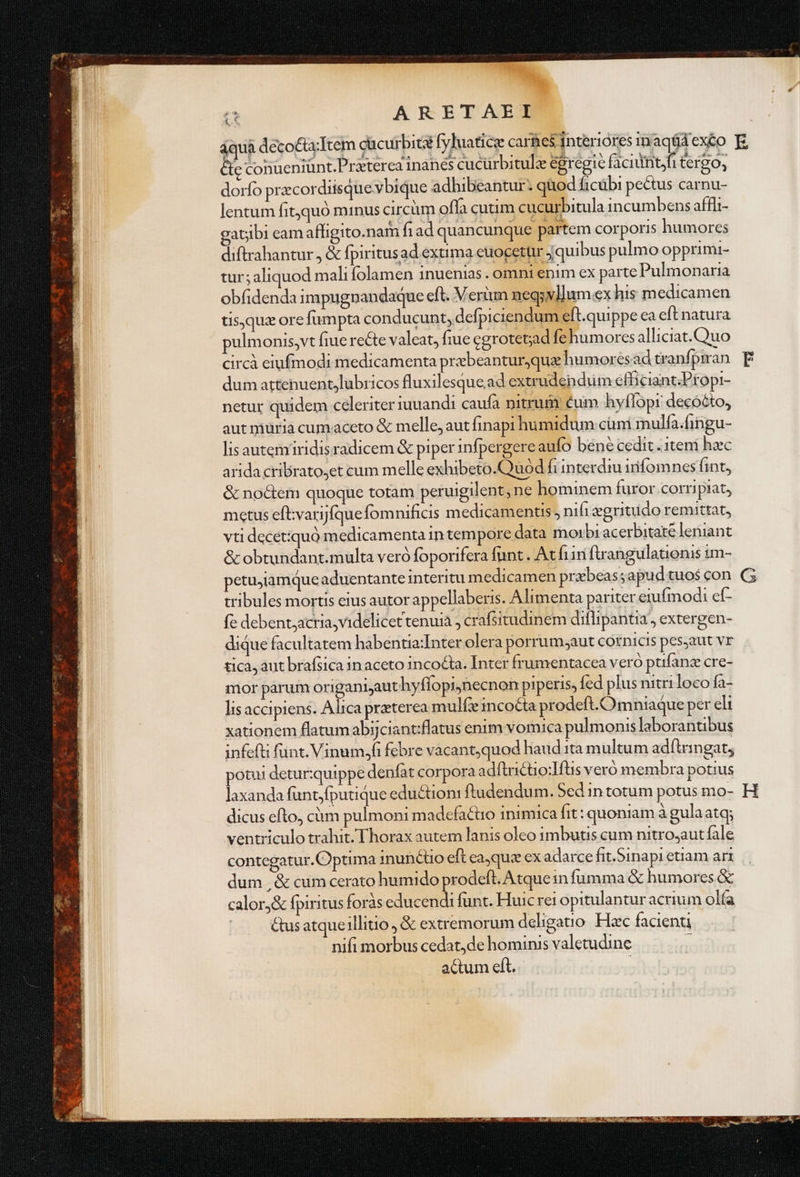 ARETAEI
aquá decocta:Item cucurbitæ ſyluaticæ carnes interiores in aquá exco E
cte conueniunt.Præterea inanes cucurbitulæ egregie faciunt,ſi tergo,
dorſo præcordiisque vbique adhibeantur. quod ſicubi pectus carnu-
lentum ſit,quò minus circùm oſſa cutim cucurbitula incumbens affli-
gat;ibi eam affigito.nam ſi ad quancunque partem corporis humores
diſtrahantur, & ſpiritus ad extima euocetur, quibus pulmo opprimi-
tur; aliquod mali ſolamen inuenias. omni enim ex parte Pulmonaria
obſidenda impugnandaque eſt. Verùm neq; vllum ex his medicamen
tis,quæ ore ſumpta conducunt, deſpiciendum eſt.quippe ea eſt natura
pulmonis,vt ſiue recte valeat, ſiue egrotet;ad ſe humores alliciat.Quo
circà eiuſmodi medicamenta præbeantur,quæ humores ad tranſpiran F
dum attenuent,lubricos fluxilesque,ad extrudendum efficiant.Propi-
netur quidem celeriter iuuandi cauſa nitrum cum hyſſopi decocto,
aut muria cum aceto & melle, aut ſinapi humidum cum mulſa.ſingu-
lis autem iridis radicem & piper inſpergere auſo bene cedit. item hæc
arida cribrato,et cum melle exhibeto.Quòd ſi interdiu inſomnes ſint,
& noctem quoque totam peruigilent, ne hominem furor corripiat,
metus eſt:varijſque ſomnificis medicamentis, niſi ægritudo remittat,
vti decet:quò medicamenta in tempore data morbi acerbitaté leniant
& obtundant.multa veró ſoporifera ſunt. At ſi in ſtrangulationis im-
petu,iamque aduentante interitu medicamen præbeas; apud tuos con G
tribules mortis eius autor appellaberis. Alimenta pariter eiuſmodi eſ-
ſe debent,acria,videlicet tenuia, craſsitudinem diſſipantia, extergen-
dique facultatem habentia:Inter olera porrum,aut cornicis pes,aut vr
tica, aut braſsica in aceto incocta. Inter frumentacea veró ptiſanæ cre-
mor parum origani,aut hyſſopi,necnon piperis, ſed plus nitri loco ſa-
lis accipiens. Alica præterea mulſæ incocta prodeſt.Omniaque per eli
xationem flatum abijciant:flatus enim vomica pulmonis laborantibus
infeſti ſunt.Vinum,ſi febre vacant,quod haud ita multum adſtringat,
potui detur:quippe denſat corpora adſtrictio:Iſtis veró membra potius
laxanda ſunt,ſputique eductioni ſtudendum. Sed in totum potus mo- H
dicus eſto, cùm pulmoni madefactio inimica ſit: quoniam à gula atq;
ventriculo trahit. Thorax autem lanis oleo imbutis cum nitro,aut ſale
contegatur.Optima inunctio eſt ea,quæ ex adarce fit.Sinapi etiam ari
dum, & cum cerato humido prodeſt. Atque in ſumma & humores &
calor,& ſpiritus foràs educendi ſunt. Huic rei opitulantur acrium olfa
ctus atque illitio, & extremorum deligatio Hæc facienti
niſi morbus cedat,de hominis valetudine
actum eſt.